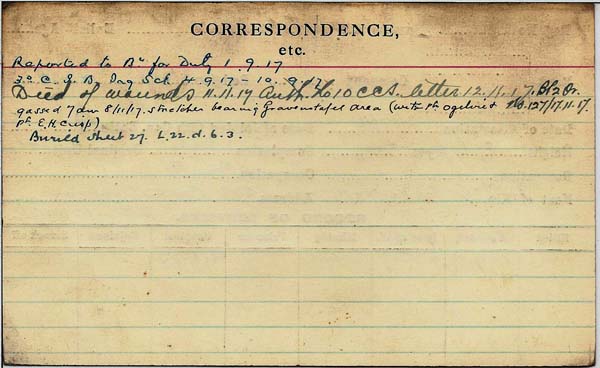 CORRESPONDENCE,
etc.
Reported to Bn for Duty 1.9.17
3rd C. I. B. Gas Sch. 4.9.17 - 10.9.17
Died of wounds 11.11.17 Auth. No 10 CCS. letter 12.11.17. Bl2
gassed 7am 8/11/17. stretcher bearing Gravenstafel area (with Pt Ogilvie & No. 127/17.11.17.
Pt E.H. Crisp)
Buried sheet 27. L.22.d.6.3.